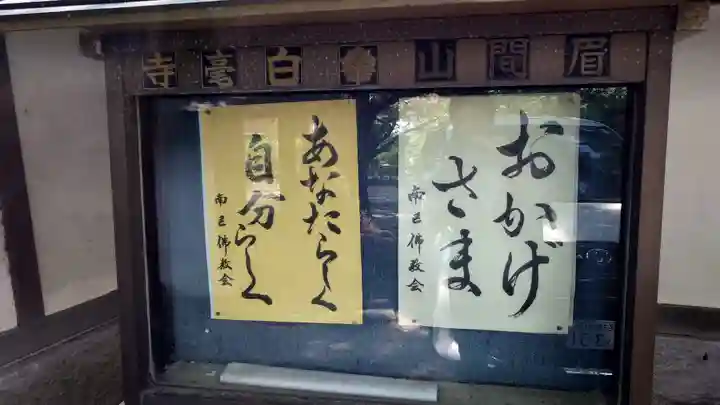 眉間山白毫寺
おかげ
さまま
南区佛教会
あなたらしく
自分らしく
南区佛教会